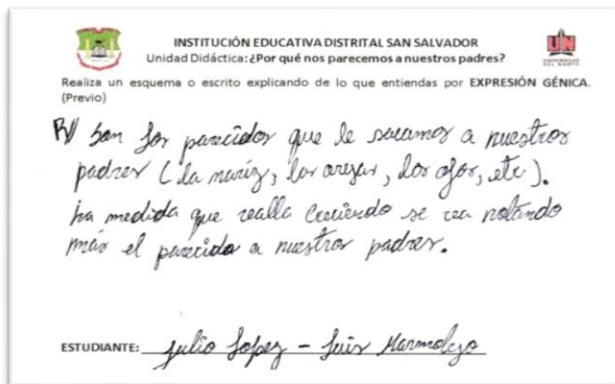 INSTITUCIÓN EDUCATIVA DISTRITAL SAN SALVADOR
Unidad Didáctica: ¿Por qué nos parecemos a nuestros padres?
Realiza un esquema o escrito explicando de lo que entiendas por EXPRESIÓN GÉNICA.
(Previo)
R// Son los parecidos que le sacamos a nuestros
padres (la nariz, las orejas, los ojos, etc).
ha medida que vaya creciendo se va notando
más el parecido a nuestros padres.
ESTUDIANTE: Julio Lopez - Luis Marmolejo